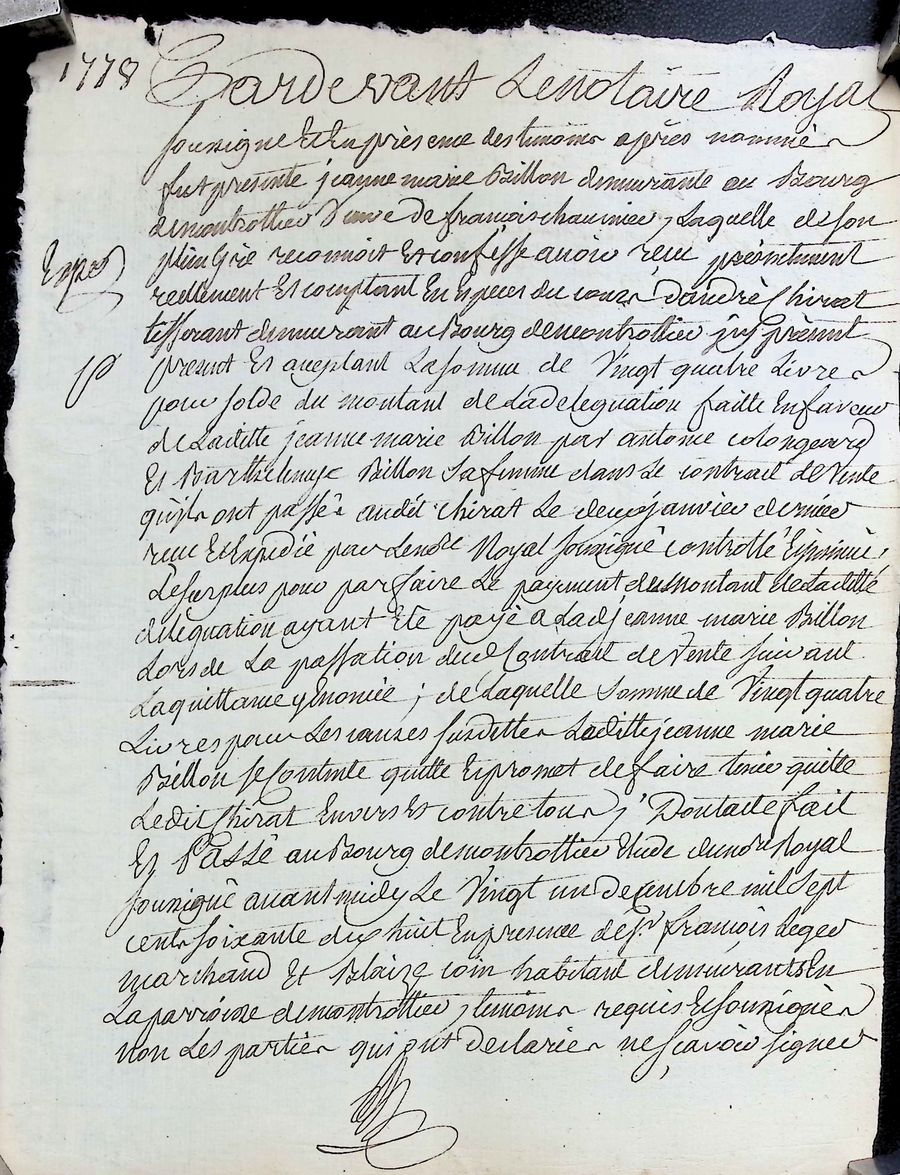 1778
Pardevant Le notaire Royal
soussigné Et En présence des temoins après nommés
fut presente jeanne marie Billon demeurante au Bourg
de montrottier Veuve de francois chaumier, Laquelle de son
plein gré reconnoit Et confesse avoir reçu présentement
Exped
reellement Et comptant En especes du cours d'andré Chirat
tisserant demeurant au Bourg de montrottier icy présent
present Et acceptant La somme de Vingt quatre Livres
pour solde du montant de La deleguation faitte En faveur
de Laditte jeanne marie Billon par antoine colongeard
Et Barthelemye Billon sa femme dans Le contract de Vente
qu'ils ont passé audit chirat Le deux janvier dernier
recu Et Expedié par Le notre Royal soussigné controllé Et insinué,
Le surplus pour parfaire Le payement du montant de Laditte
déléguation ayant Eté payé a Lad jeanne marie Billon
Lors de La passation dud Contract de Vente suivant
La quittance y Enoncée ; de Laquelle somme de Vingt quatre
Livres pour Les causes susdittes Laditte jeanne marie
Billon se Contente quitte Et promet de faire tenir quitte
Ledit Chirat Envers Et contre tous, Dont acte fait
Et Passé au Bourg de montrottier Etude du notre Royal
soussigné avant midy Le Vingt un decembre mil sept
cent soixante dix huit En presence de sr françois Leger
marchand Et Blaize coin habitant demeurants En
La parroisse de montrottier, temoins requis Et soussignés
non Les parties qui ont declarées ne sçavoir signer